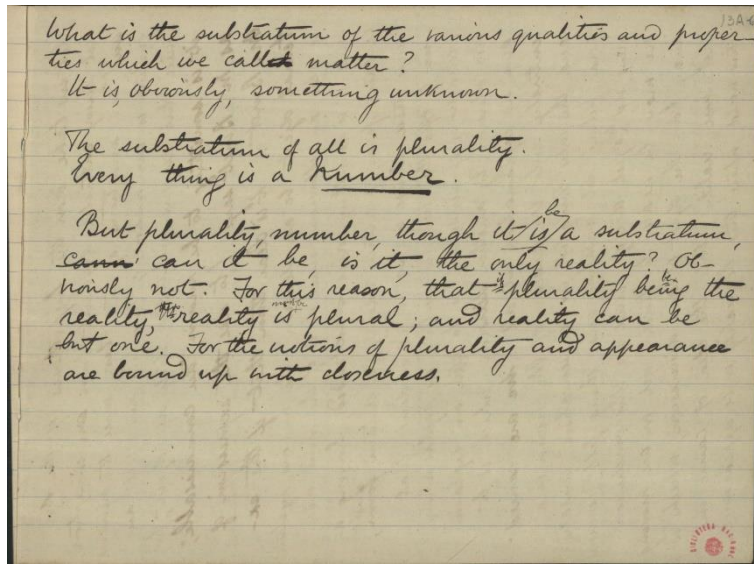 13A-6
What is the substratum of the various qualities and proper-
ties which we call matter?
It is, obviously, something unknown.
The substratum of all is plurality.
Every thing is a Number.
But plurality, number, though it is be a substratum,
can it be, is it, the only reality? Ob-
viously not. For this reason, that if plurality being the
reality, reality is plural; and reality can be
but one. For the notions of plurality and appearance
are bound up with closeness.